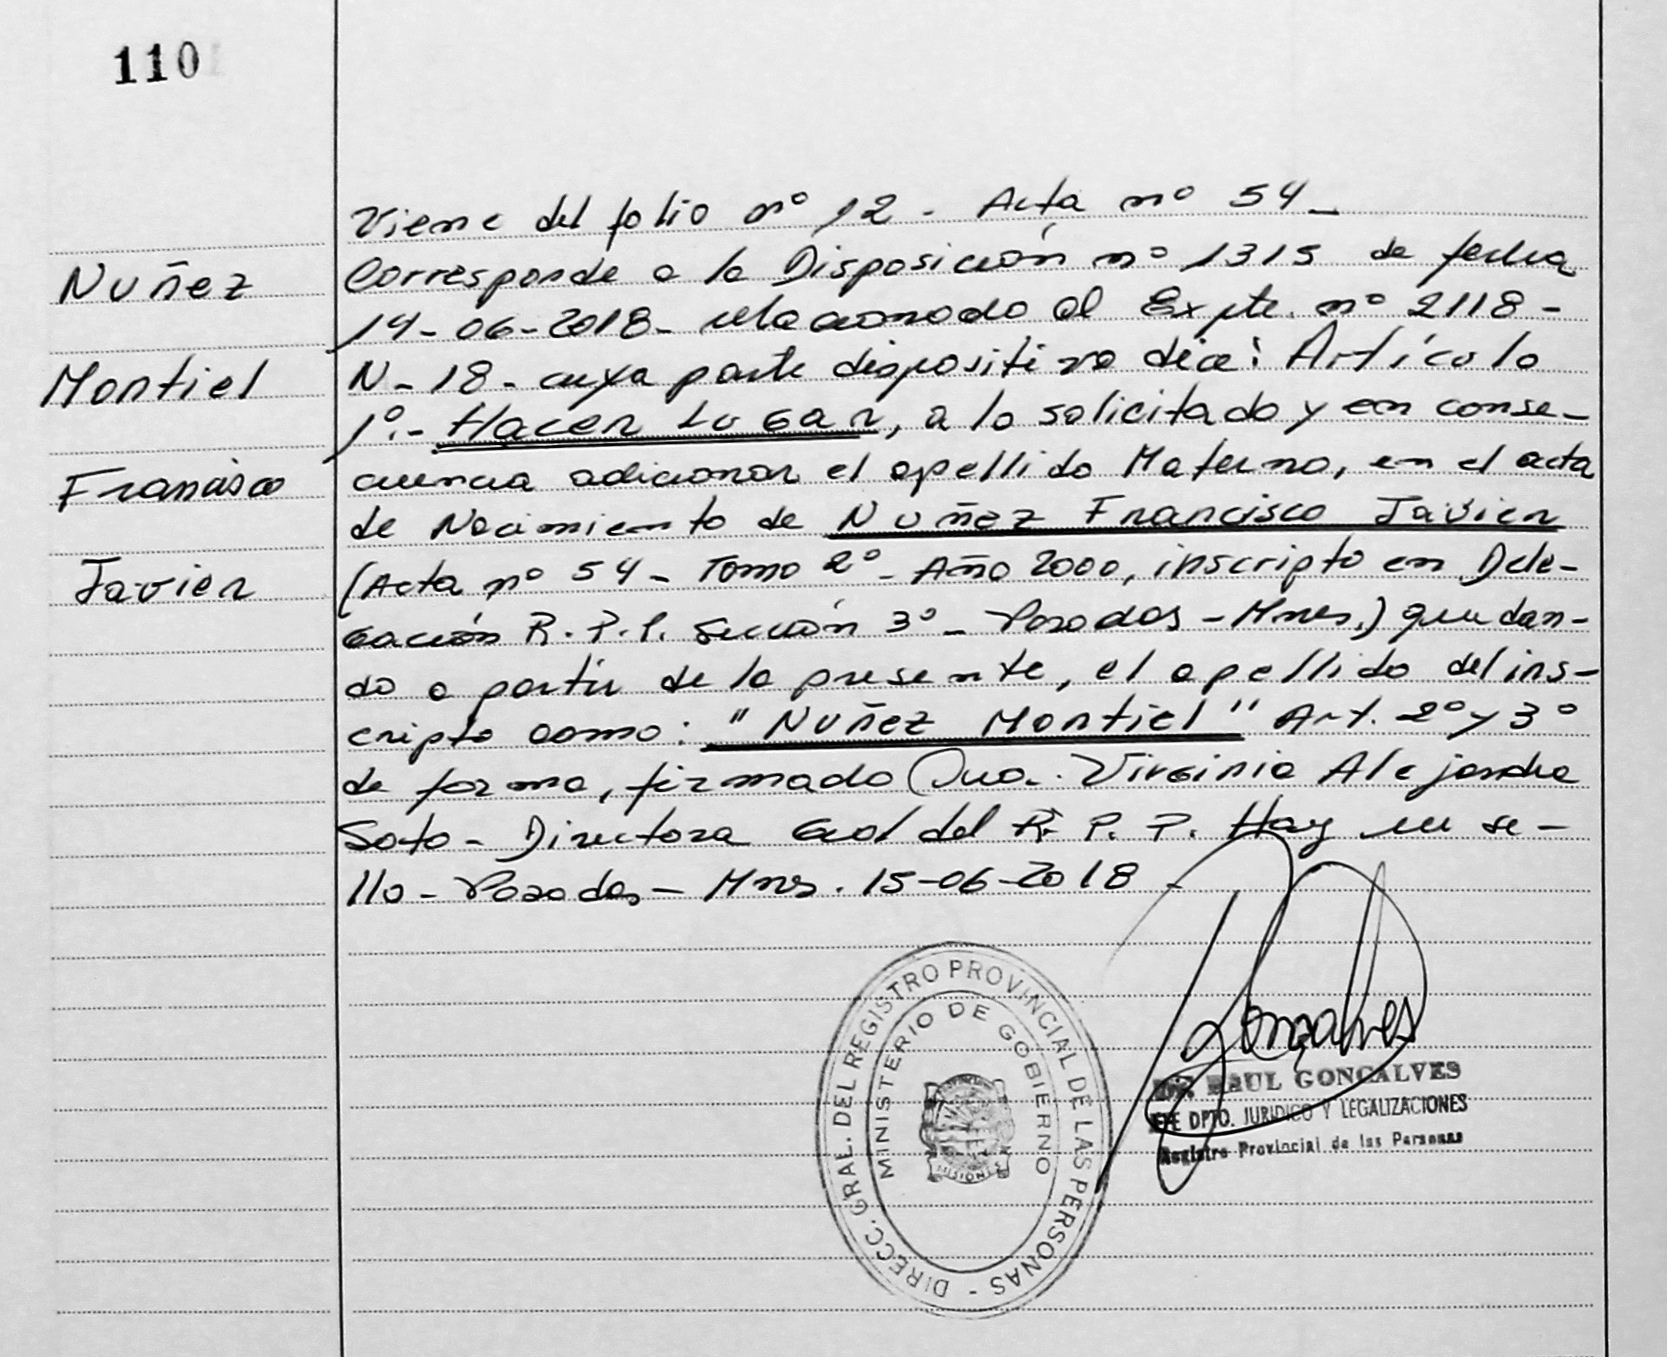 110
Nuñez
Montiel
Francisco
Javier
Viene del folio nº 12 - Acta nº 54-
Corresponde a la Disposición nº 1315 de fecha
14-06-2018- relacionado al Expte. nº 2118-
N-18- cuya parte dispositiva dice: Artículo
1º:- Hacer Lugar, a lo solicitado y en conse-
cuencia adicionar el apellido Materno, en el acta
de Nacimiento de Nuñez Francisco Javier
(Acta nº 54 - Tomo 2º - Año 2000, inscripto en Dele-
gación R.P.P. Sección 3º - Posadas - Mnes.) quedan-
do a partir de la presente, el apellido del ins-
cripto como: "Nuñez Montiel" Art. 2º y 3º
de forma, firmado Virginia Alejandra
Soto - Directora Gral del R.P.P. Hay un se-
llo - Posadas - Mnes. 15-06-2018-
DIRECC. GRAL. DEL REGISTRO PROVINCIAL DE LAS PERSONAS -
MINISTERIO DE GOBIERNO
MISIONES
Gonçalves
Dr. RAUL GONCALVES
JEFE DPTO. JURIDICO Y LEGALIZACIONES
Registro Provincial de las Personas